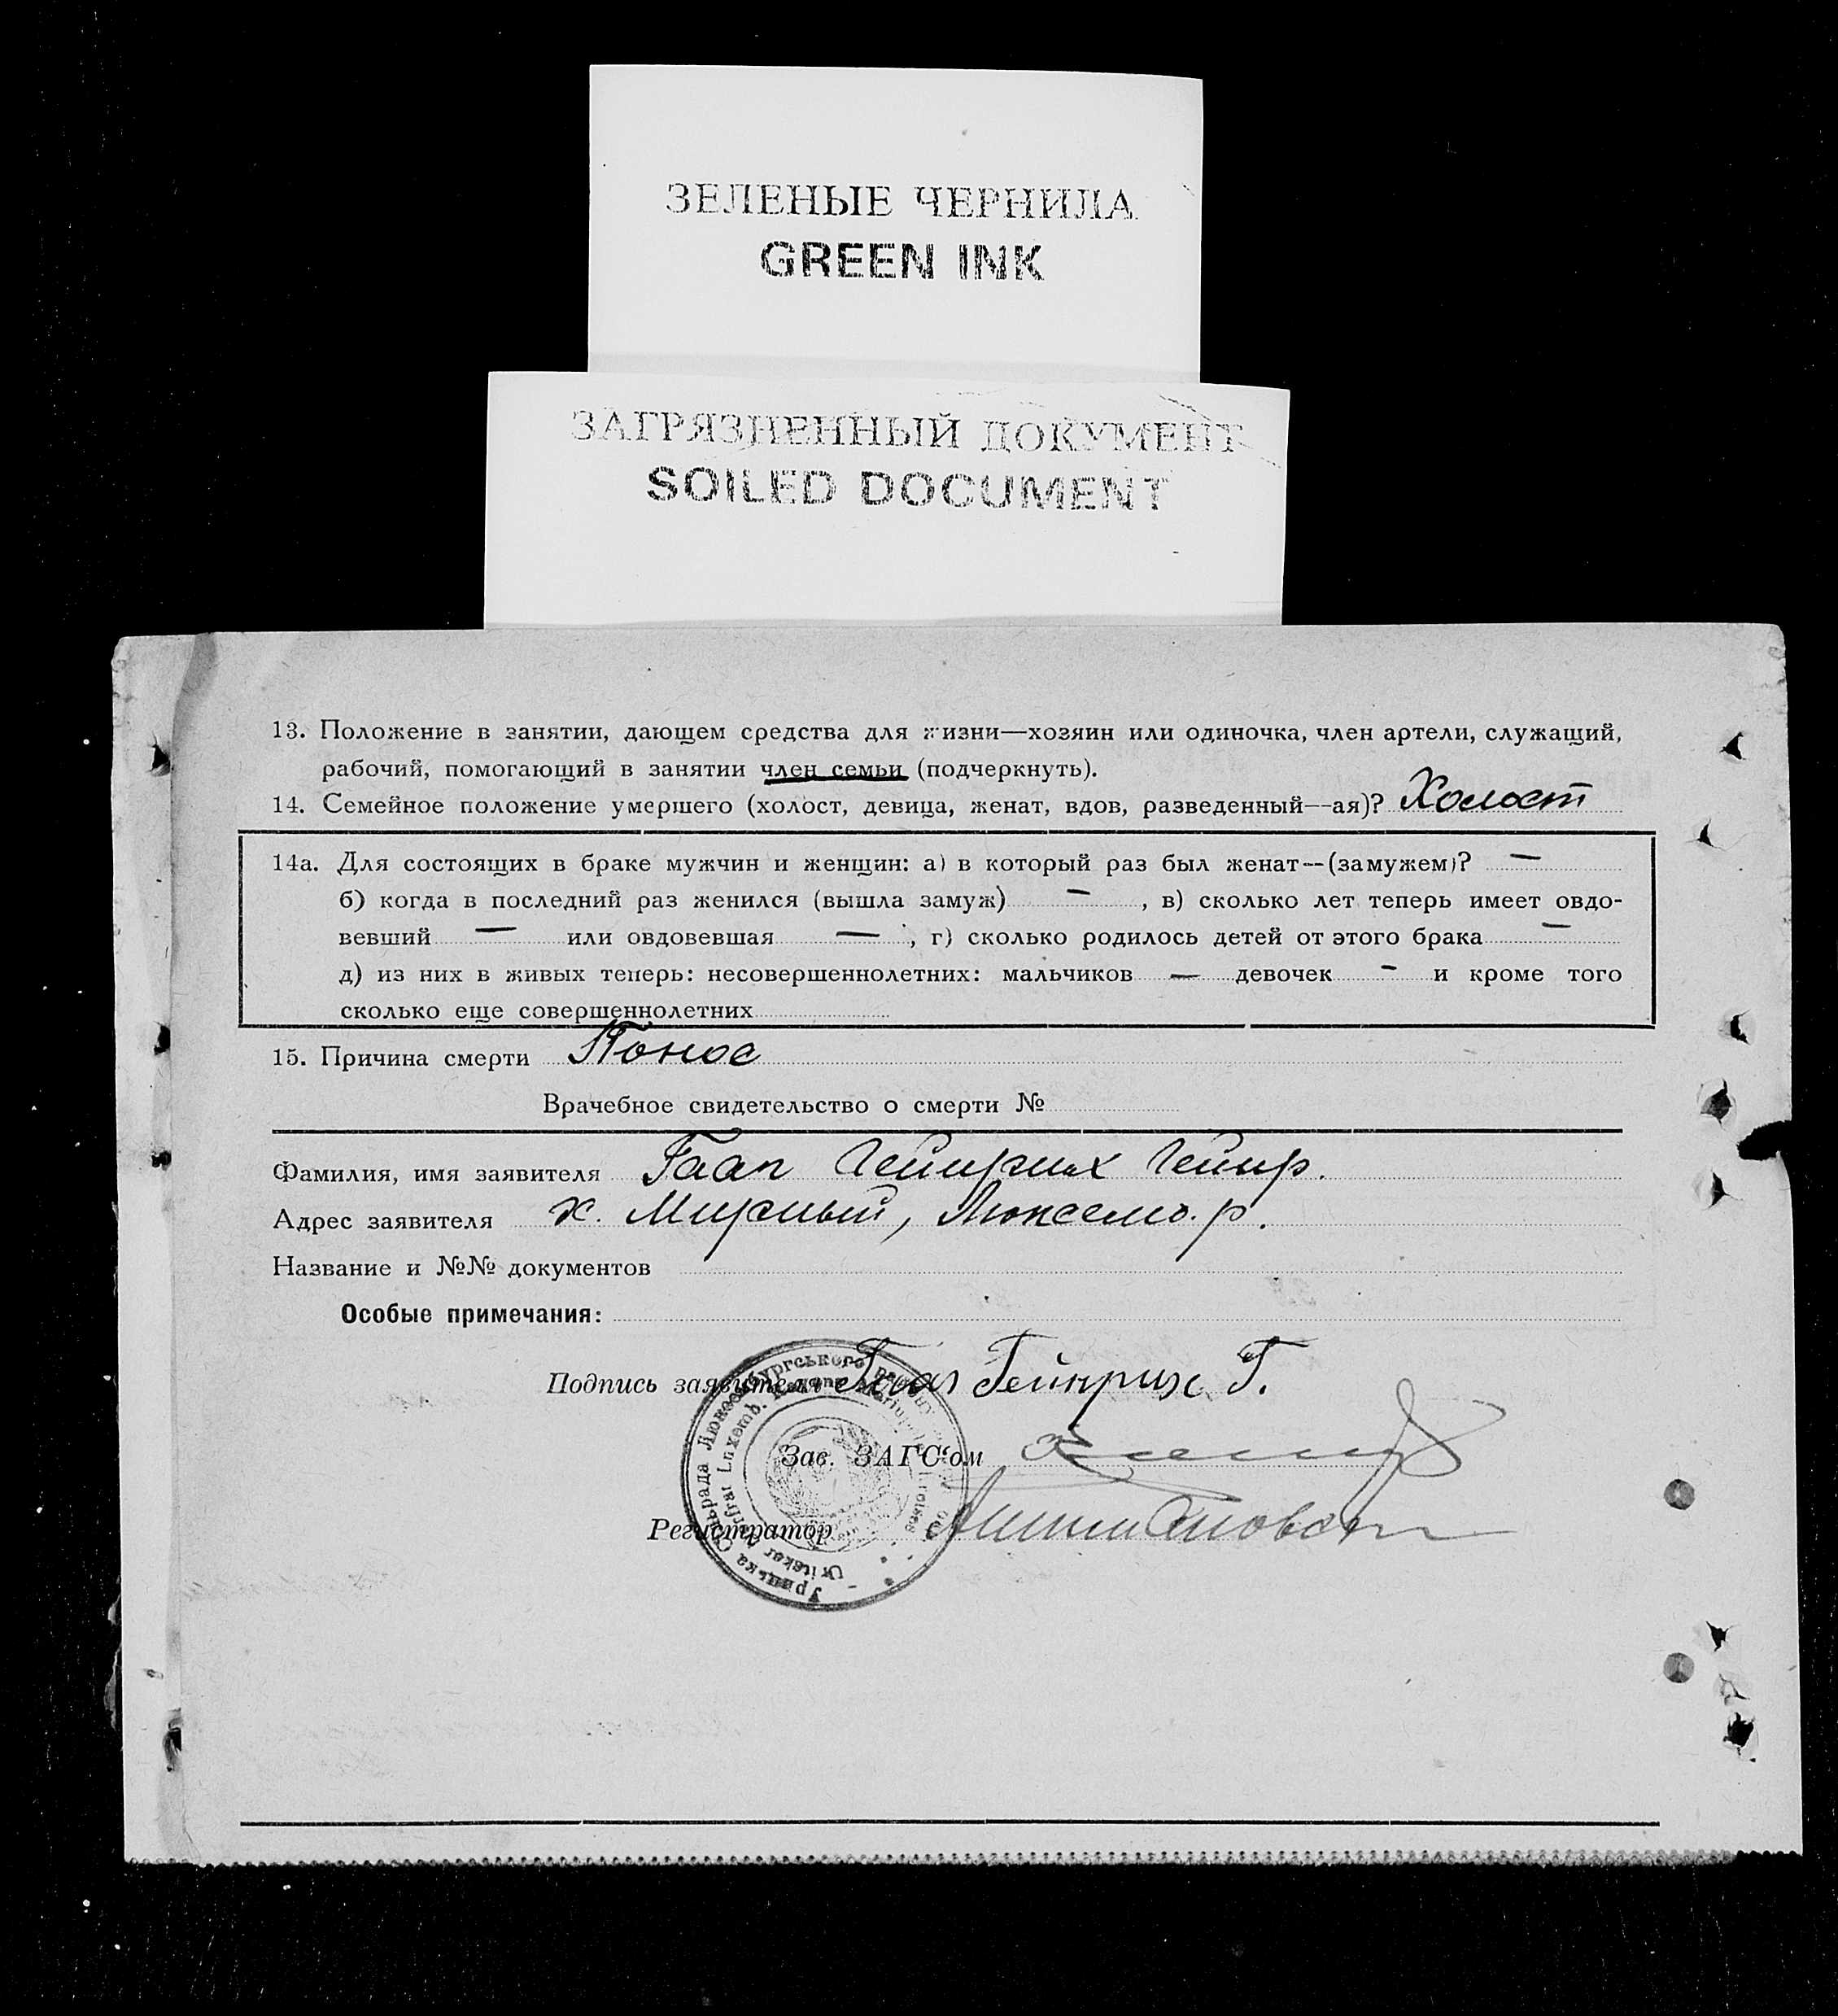 ЗЕЛЕНЫЕ ЧЕРНИЛА
GREEN INK
ЗАГРЯЗНЕННЫЙ ДОКУМЕНТ
SOILED DOCUMENT
13. Положение в занятии, дающем средства для жизни—хозяин или одиночка, член артели, служащий,
рабочий, помогающий в занятии член семьи (подчеркнуть).
14. Семейное положение умершего (холост, девица, женат, вдов, разведенный—ая)? Холост
14а. Для состоящих в браке мужчин и женщин: а) в который раз был женат—(замужем)? —
б) когда в последний раз женился (вышла замуж) — , в) сколько лет теперь имеет овдо-
вевший — или овдовевшая — , г) сколько родилось детей от этого брака —
д) из них в живых теперь: несовершеннолетних: мальчиков — девочек - и кроме того
сколько еще совершеннолетних
15. Причина смерти Понос
Врачебное свидетельство о смерти №
Фамилия, имя заявителя Гаап Гейнрих Гейнр.
Адрес заявителя х. Мирный, Люксемб. р.
Название и №№ документов
Особые примечания:
Подпись заявителя Гаап Гейнрих Г.
Зав. ЗАГС'ом
Регистратор
Урицька Сільрада Люксембургського